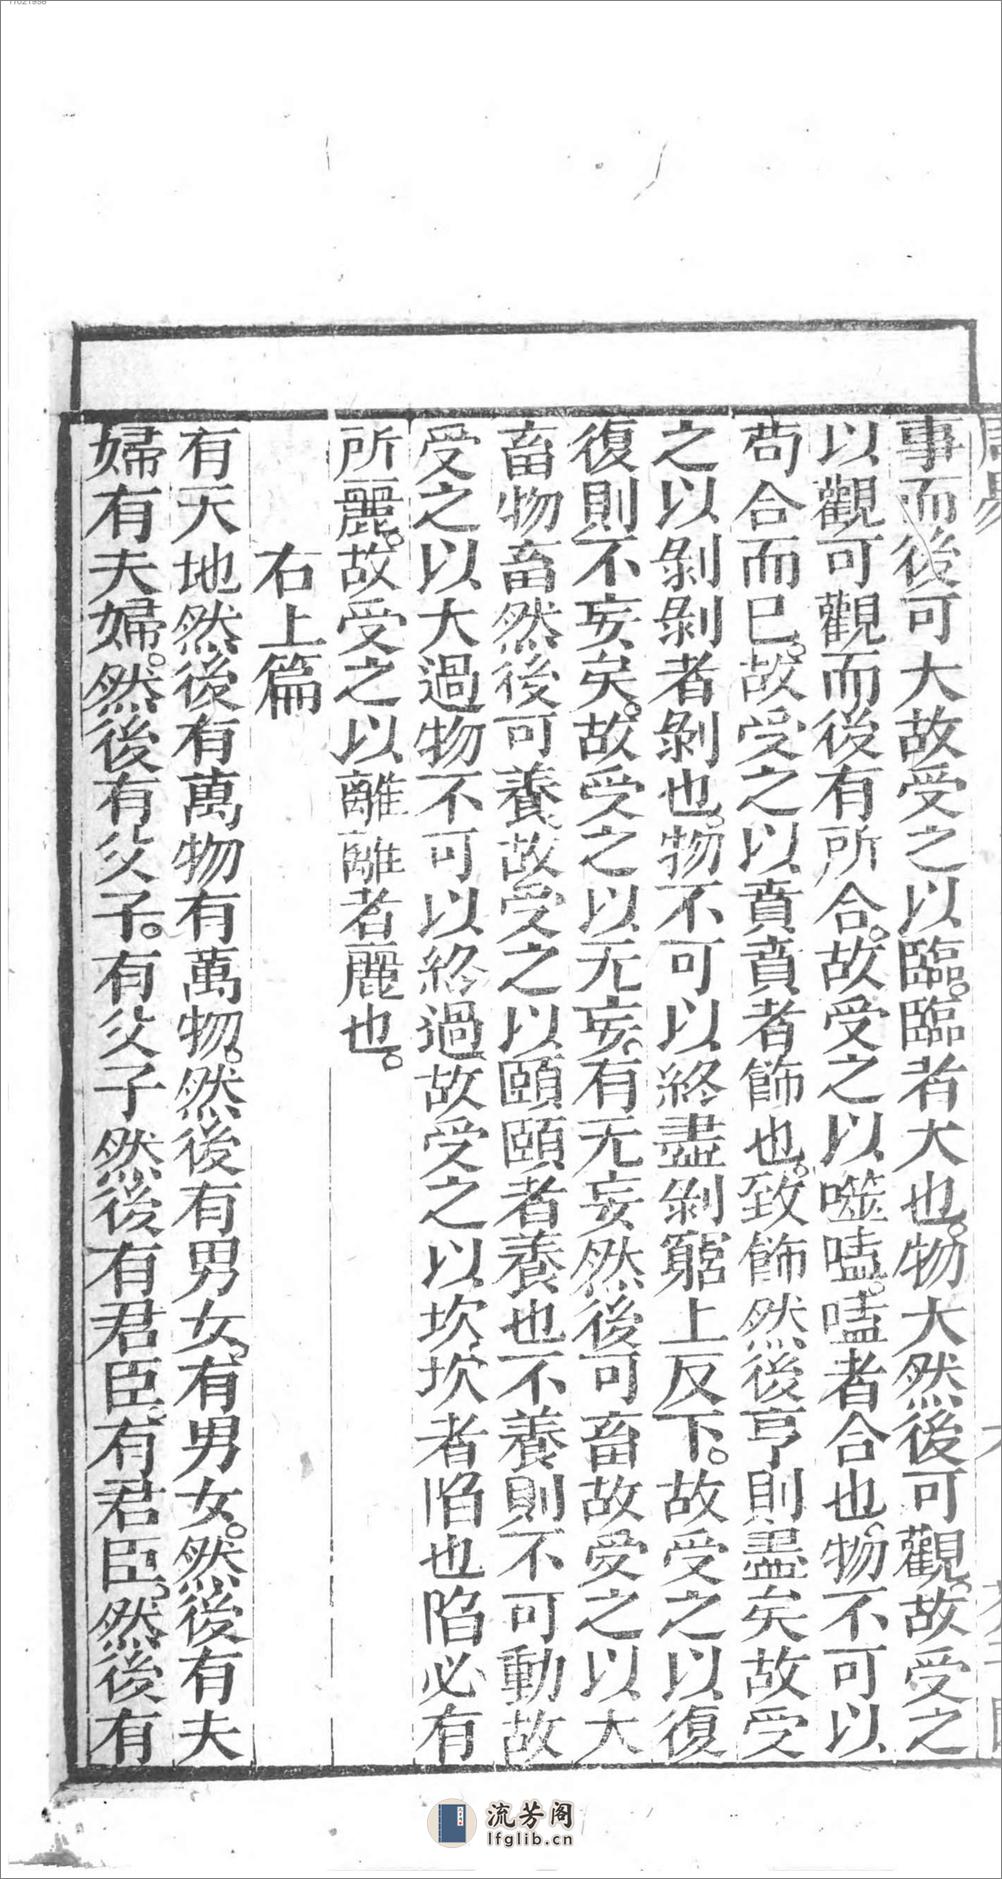 事而後可大故受之以臨。臨者大也。物大然後可觀。故受之
以觀可觀而後有所合。故受之以噬嗑。嗑者合也。物不可以
苟合而已。故受之以賁賁者飾也。致飾然後亨則盡矣故受
之以剝剝者剝也。物不可以終盡剝窮上反下。故受之以復
復則不妄矣。故受之以无妄。有无妄然後可畜故受之以大
畜物畜然後可養。故受之以頤頤者養也不養則不可動故
受之以大過物不可以終過故受之以坎坎者陷也陷必有
所麗。故受之以離離者麗也。
右上篇
有天地然後有萬物有萬物。然後有男女。有男女。然後有夫
婦有夫婦。然後有父子。有父子然後有君臣有君臣。然後有
流芳阁
lfglib.cn